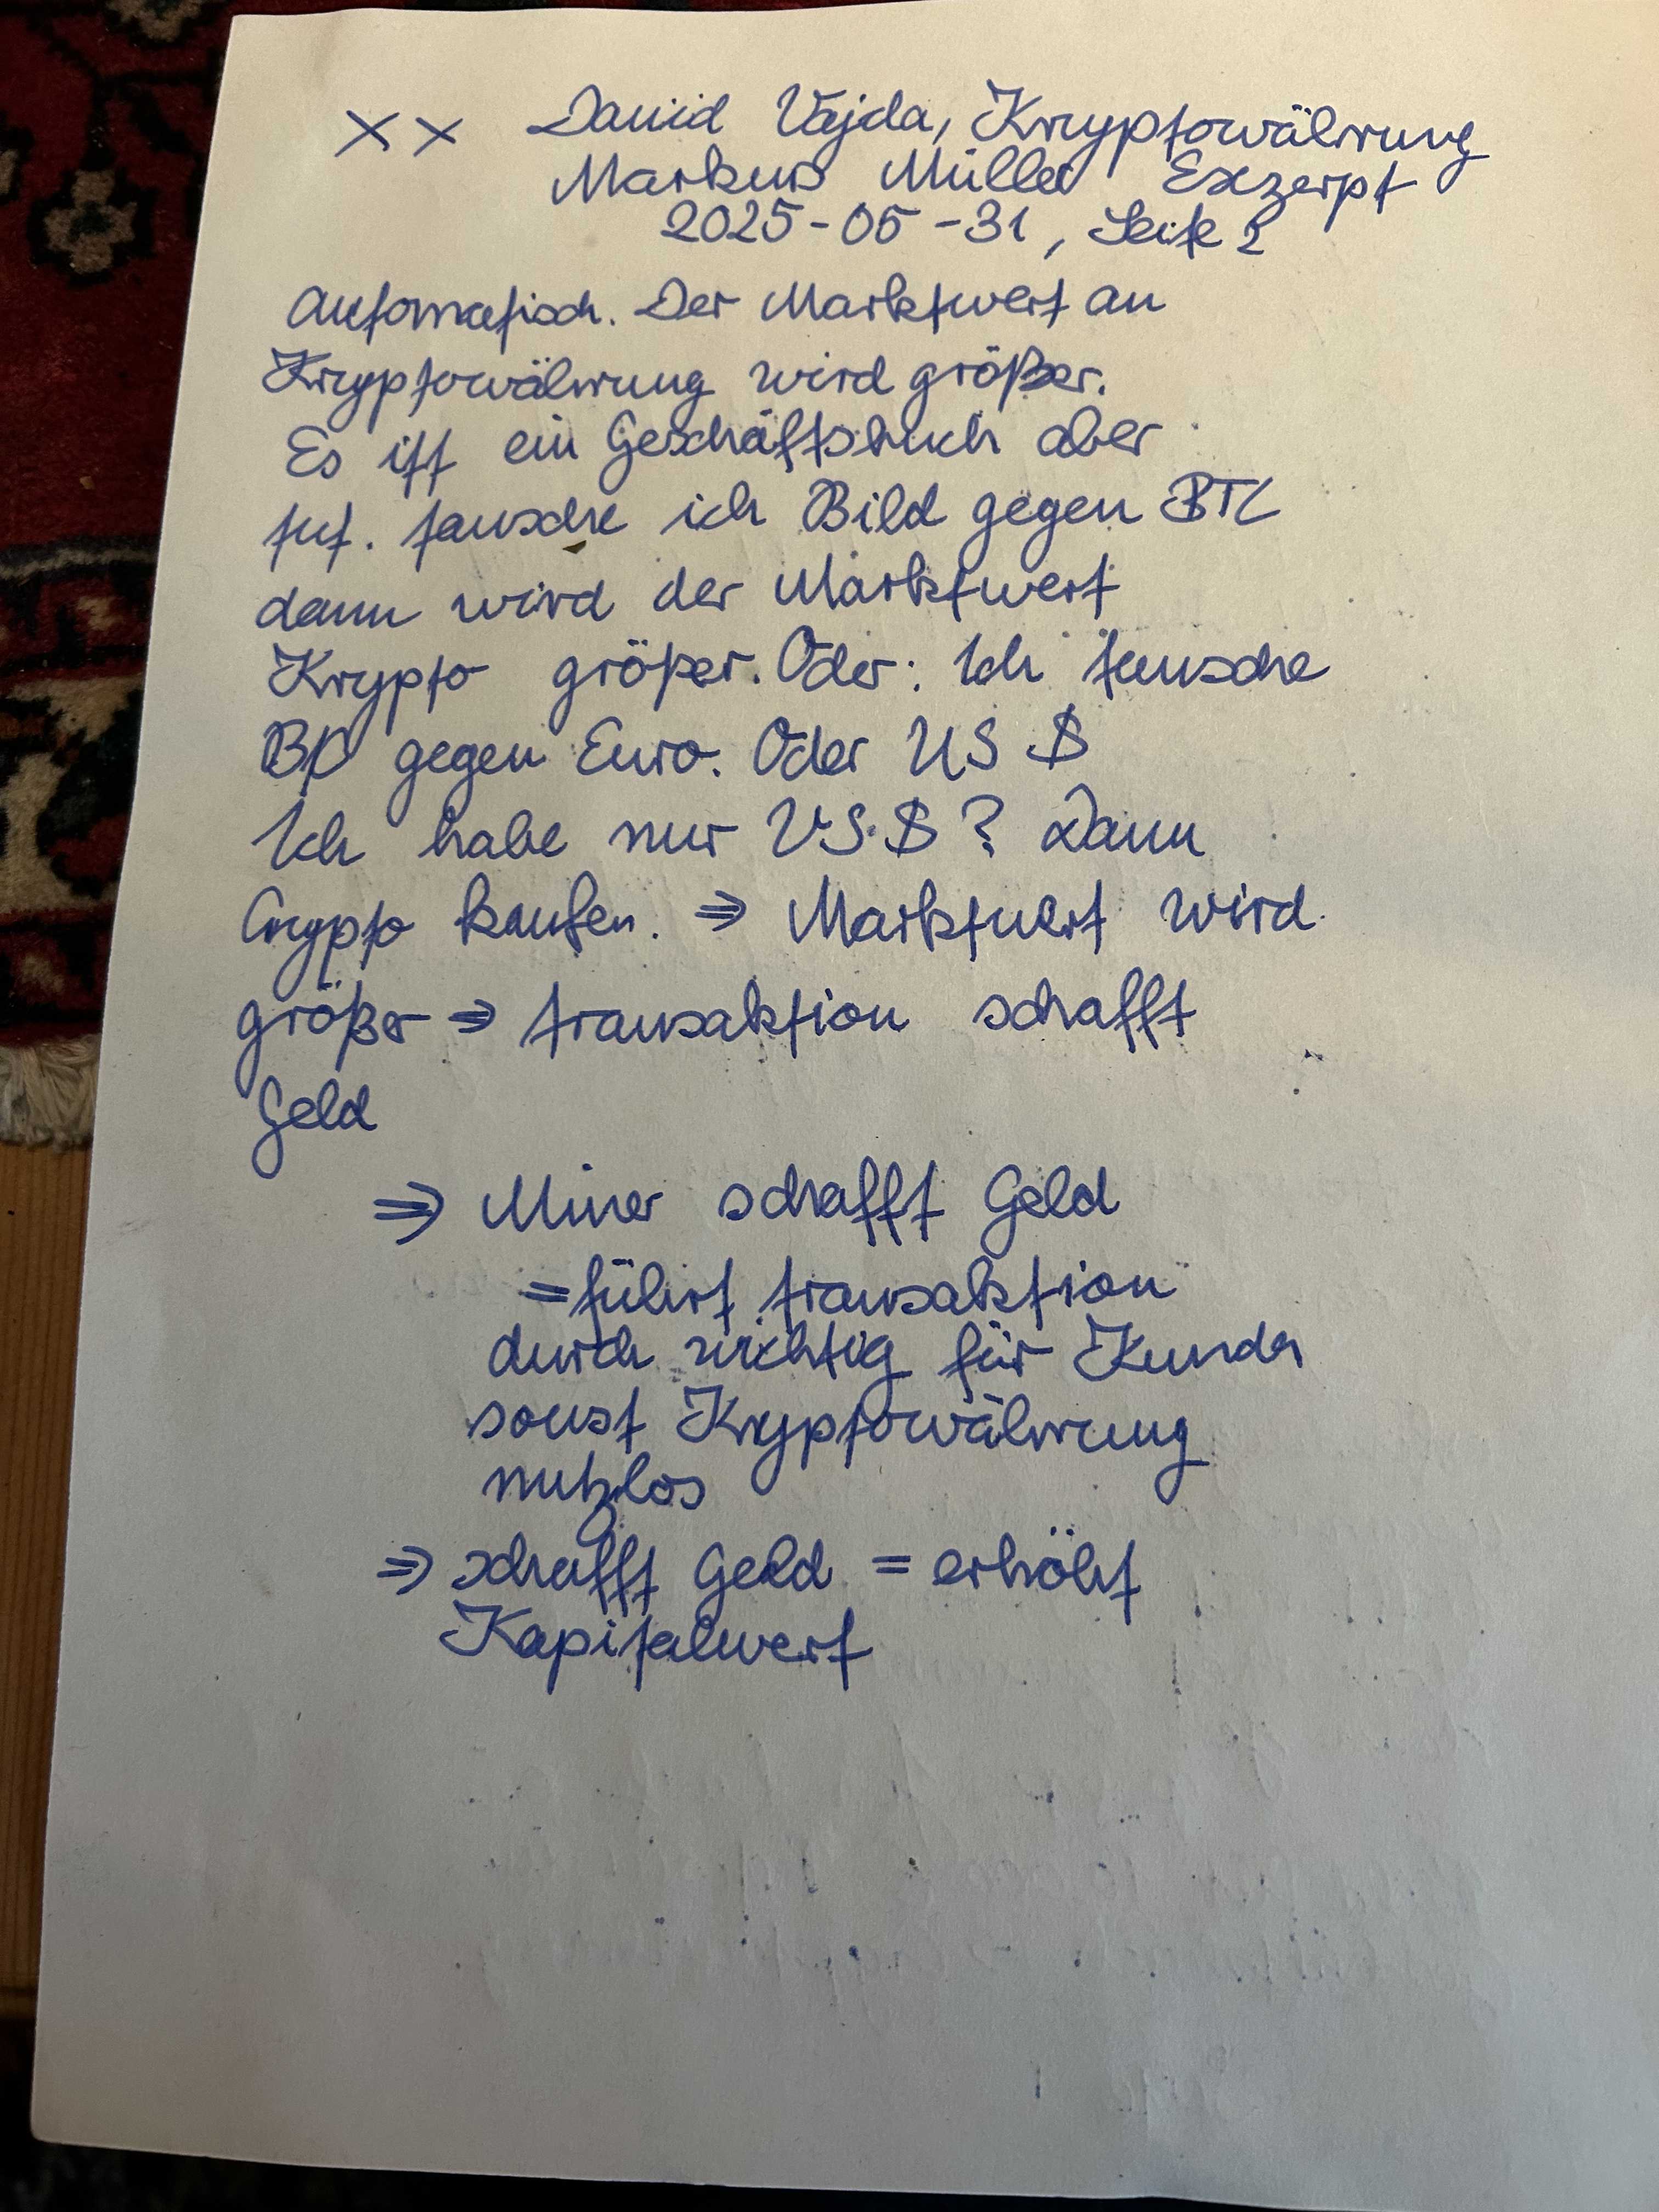 XX David Vajda, Kryptowährung
Markus Müller Exzerpt
2025-05-31, Seite 2
automatisch. Der Marktwert an
Kryptowährung wird größer.
Es ist ein Geschäftsbuch aber
tut. tausche ich Bild gegen BTC
dann wird der Marktwert
Krypto größer. Oder: Ich tausche
gegen Euro. Oder US $
Ich habe nur US $? Dann
Crypto kaufen. ⇒ Marktwert wird
größer ⇒ transaktion schafft
Geld
⇒ Miner schafft Geld
= führt transaktion
durch richtig für Kunden
sonst Kryptowährung
nutzlos
⇒ schafft Geld = erhöht
Kapitalwert